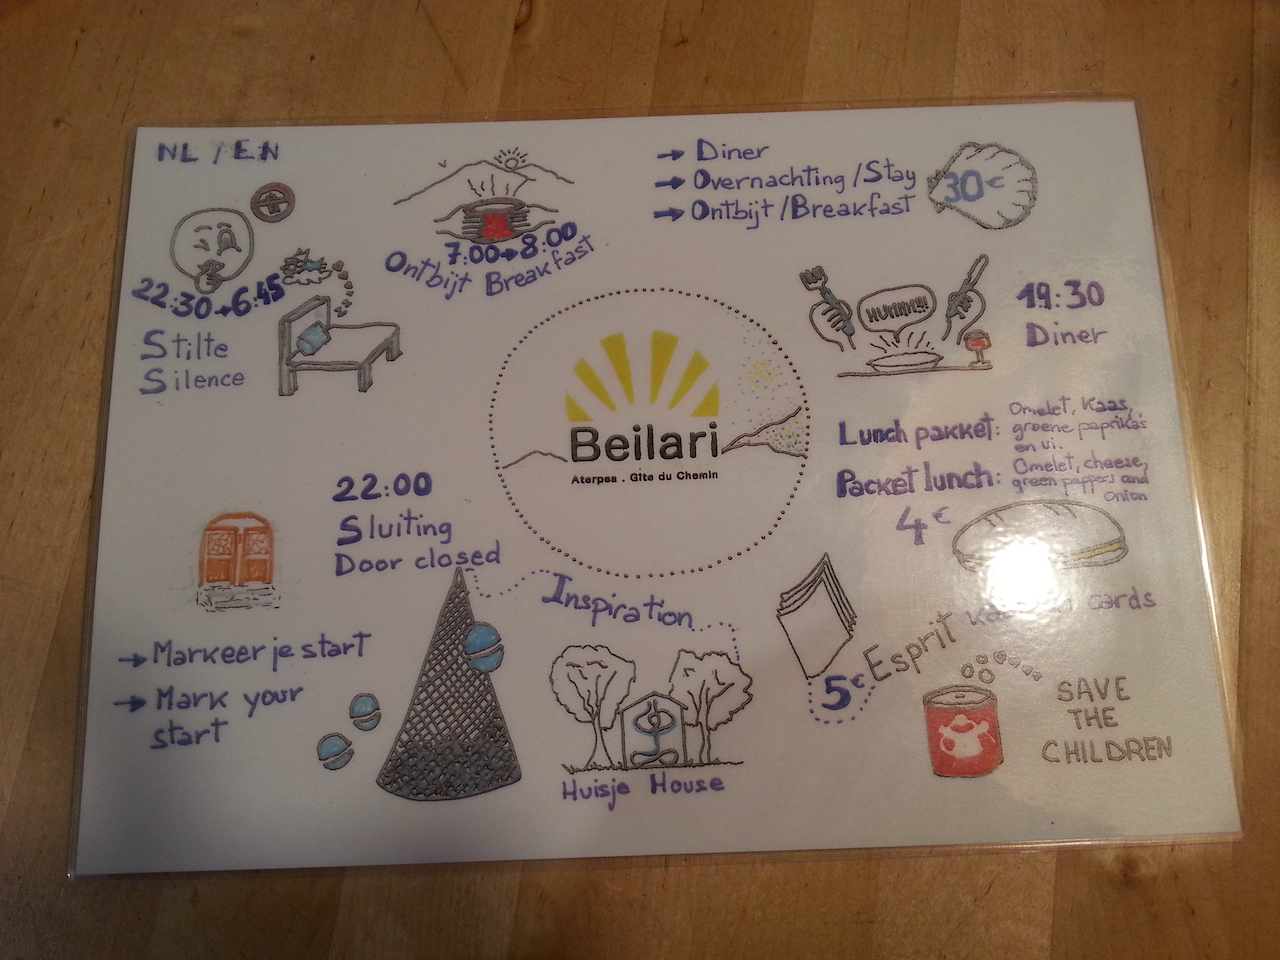 NL / EN
→ Diner
→ Overnachting / Stay
→ Ontbijt / Breakfast
30€
7:00→8:00
Ontbijt Breakfast
22:30→6:45
Stilte
Silence
HUMMM!!!
19:30
Diner
Beilari
Aterpea . Gîte du Chemin
Lunch pakket: Omelet, Kaas,
groene paprika's
en ui.
Packet lunch: Omelet, cheese,
green peppers and
onion
4€
22:00
Sluiting
Door closed
Inspiration
→ Markeer je start
→ Mark your
start
Huisje House
5€
Esprit
cards
SAVE
THE
CHILDREN